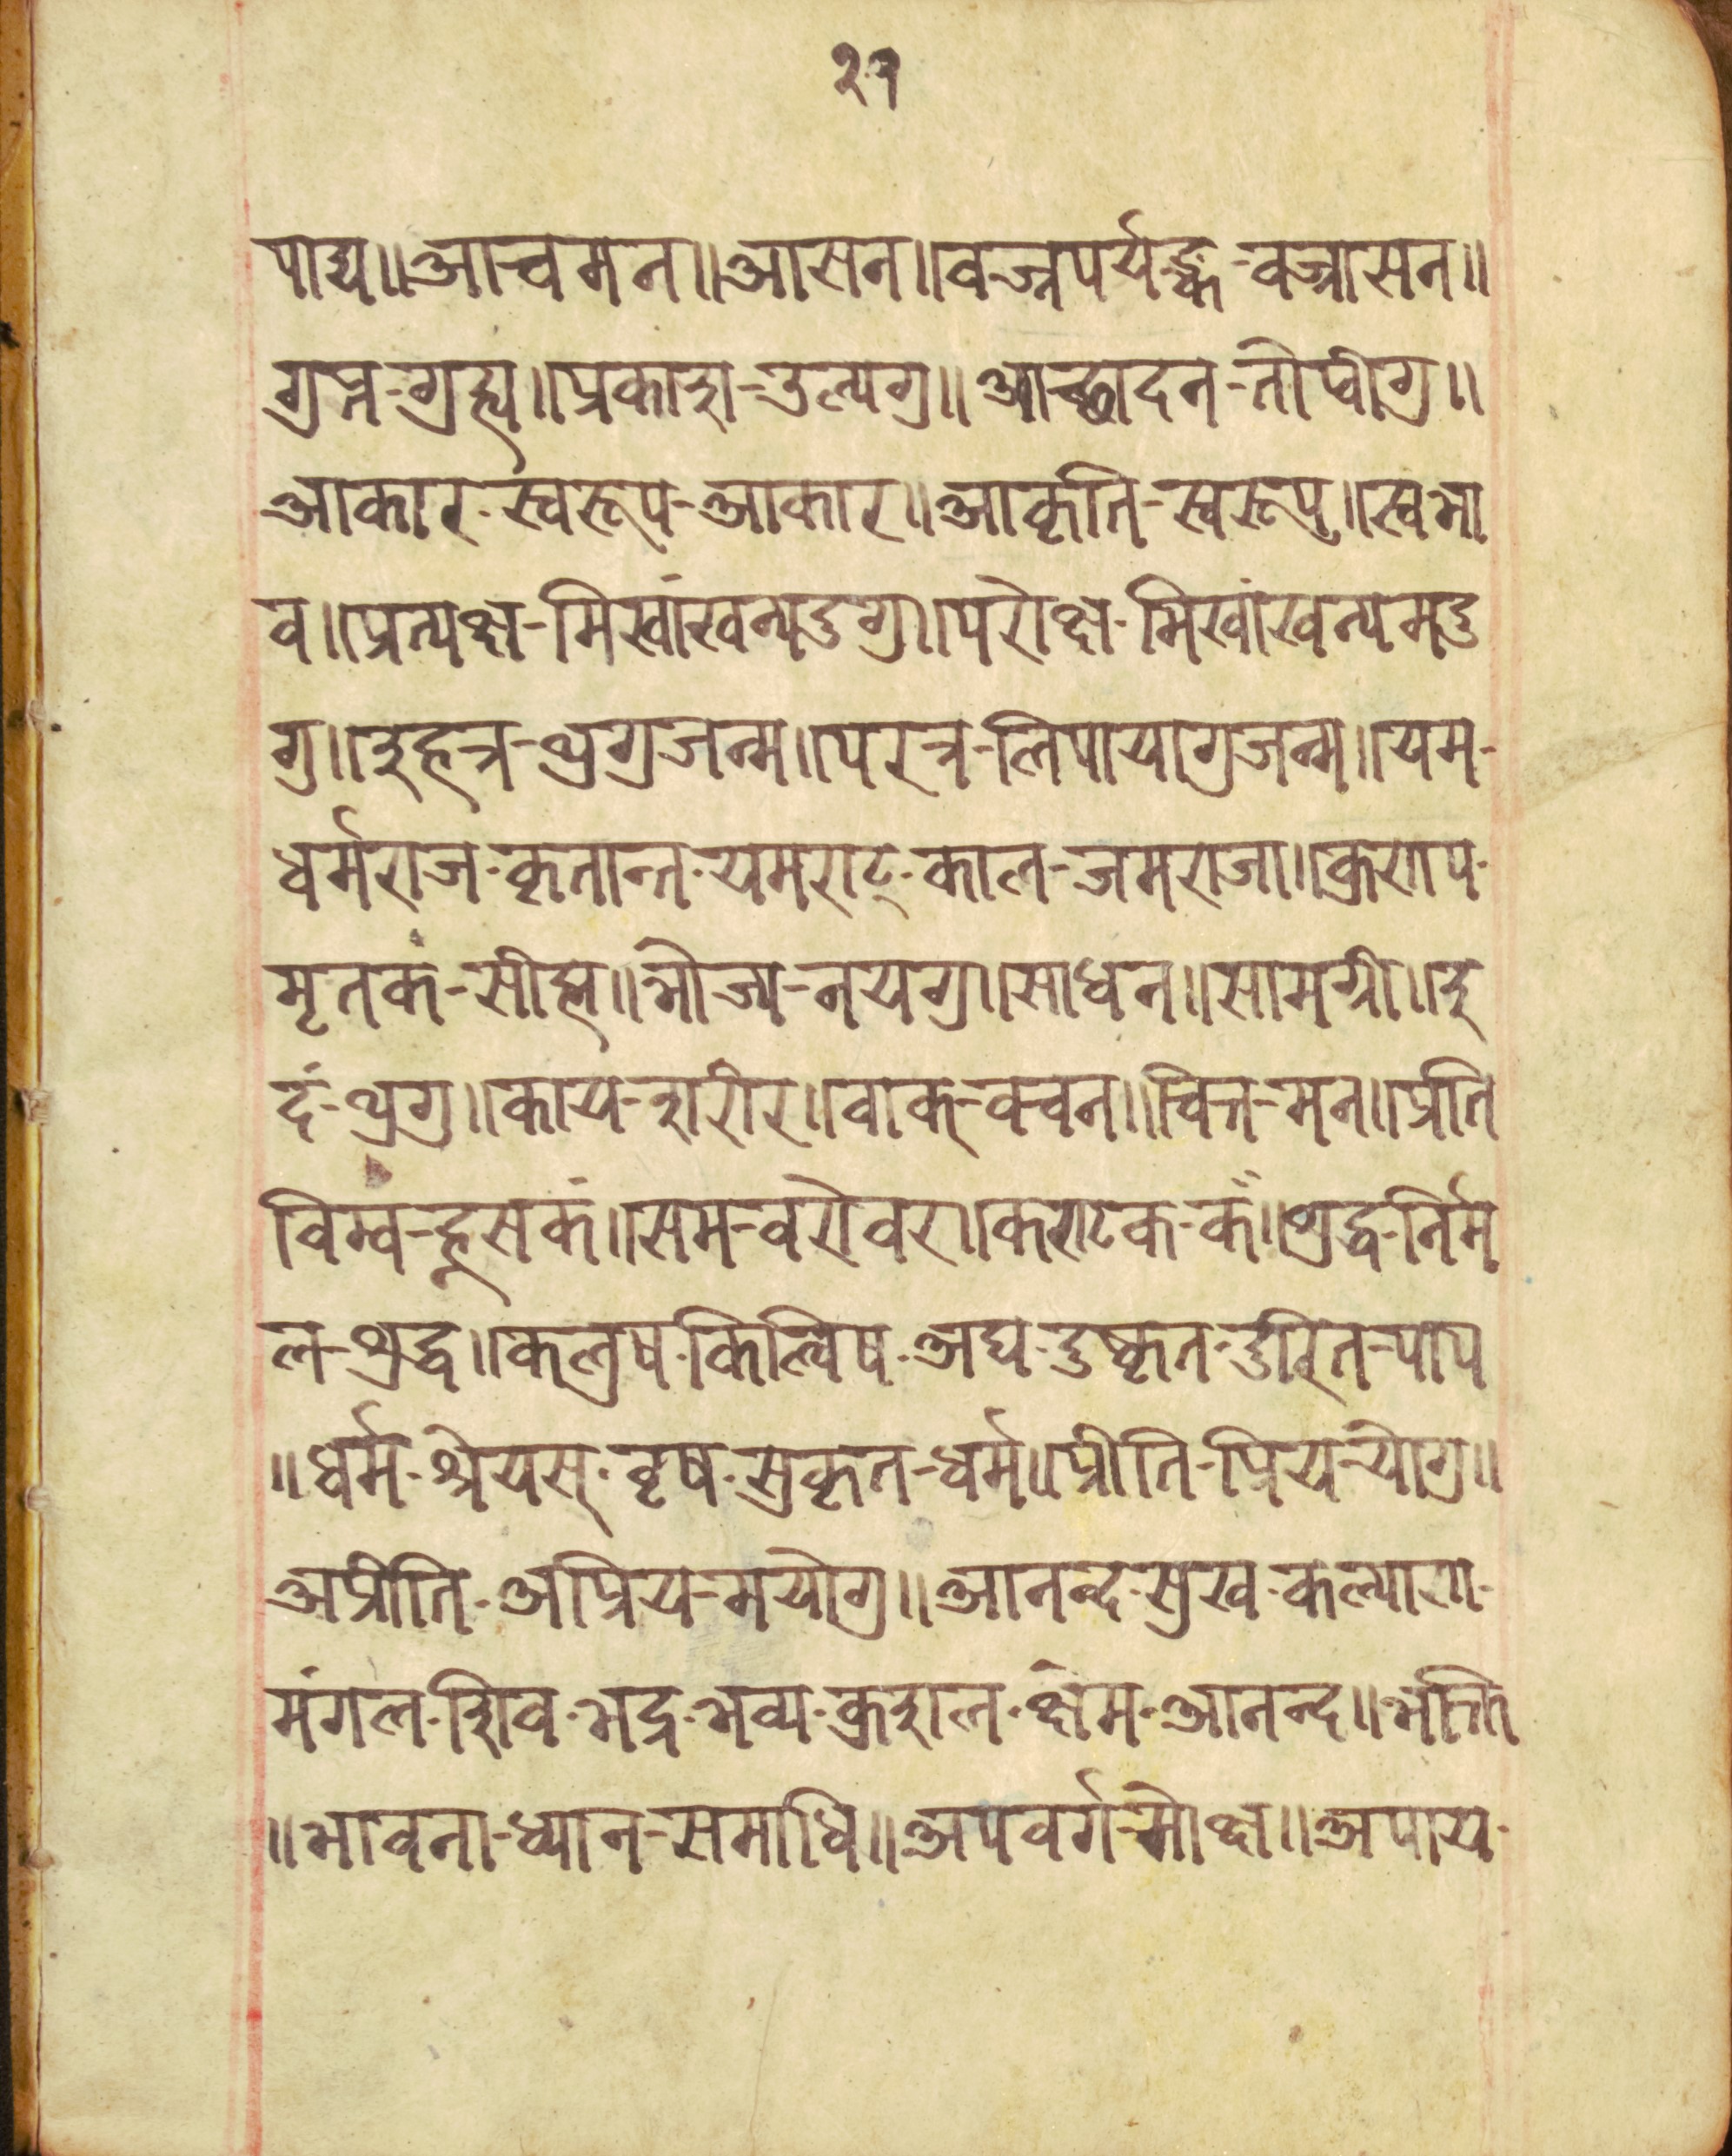 २१
पाद्य॥आचमन॥आसन॥वज्रपर्यङ्क-वज्रासन॥
गुप्त-गुह्य॥प्रकाश-उल्यगु॥आच्छादन-तोप्वीगु॥
आकार·स्वरूप-आकार॥आकृति-स्वरूपु॥स्वभा
व॥प्रत्यक्ष-मिखांखन्यदुगु॥परोक्ष-मिखांखन्यमदु
गु॥इहत्र-थुगुजन्म॥परत्र-लिपायागुजन्म॥यम-
धर्मराज·कृतान्त·यमराट्·काल-जमराजा॥कुणप·
मृतक-सीह्म॥भोज्य-नयगु॥साधन॥सामग्री॥इ
दं-थुगु॥काय-शरीर॥वाक्-वचन॥चित्त-मन॥प्रति
विम्व-ह्नसकं॥सम-वरोवर॥कण्टक-कँ॥शुद्ध-निर्म
ल-शुद्ध॥कलुष·किल्विष·अघ·दुष्कृत·दुरित-पाप
॥धर्म·श्रेयस्·वृष·सुकृत-धर्म॥प्रीति-प्रिय-योगु॥
अप्रीति·अप्रिय-मयोगु॥आनन्द·सुख·कल्याण·
मंगल·शिव·भद्र·भव्य·कुशल·क्षेम-आनन्द॥भक्ति
॥भावना-ध्यान-समाधि॥अपवर्ग-मोक्ष॥अपाय·